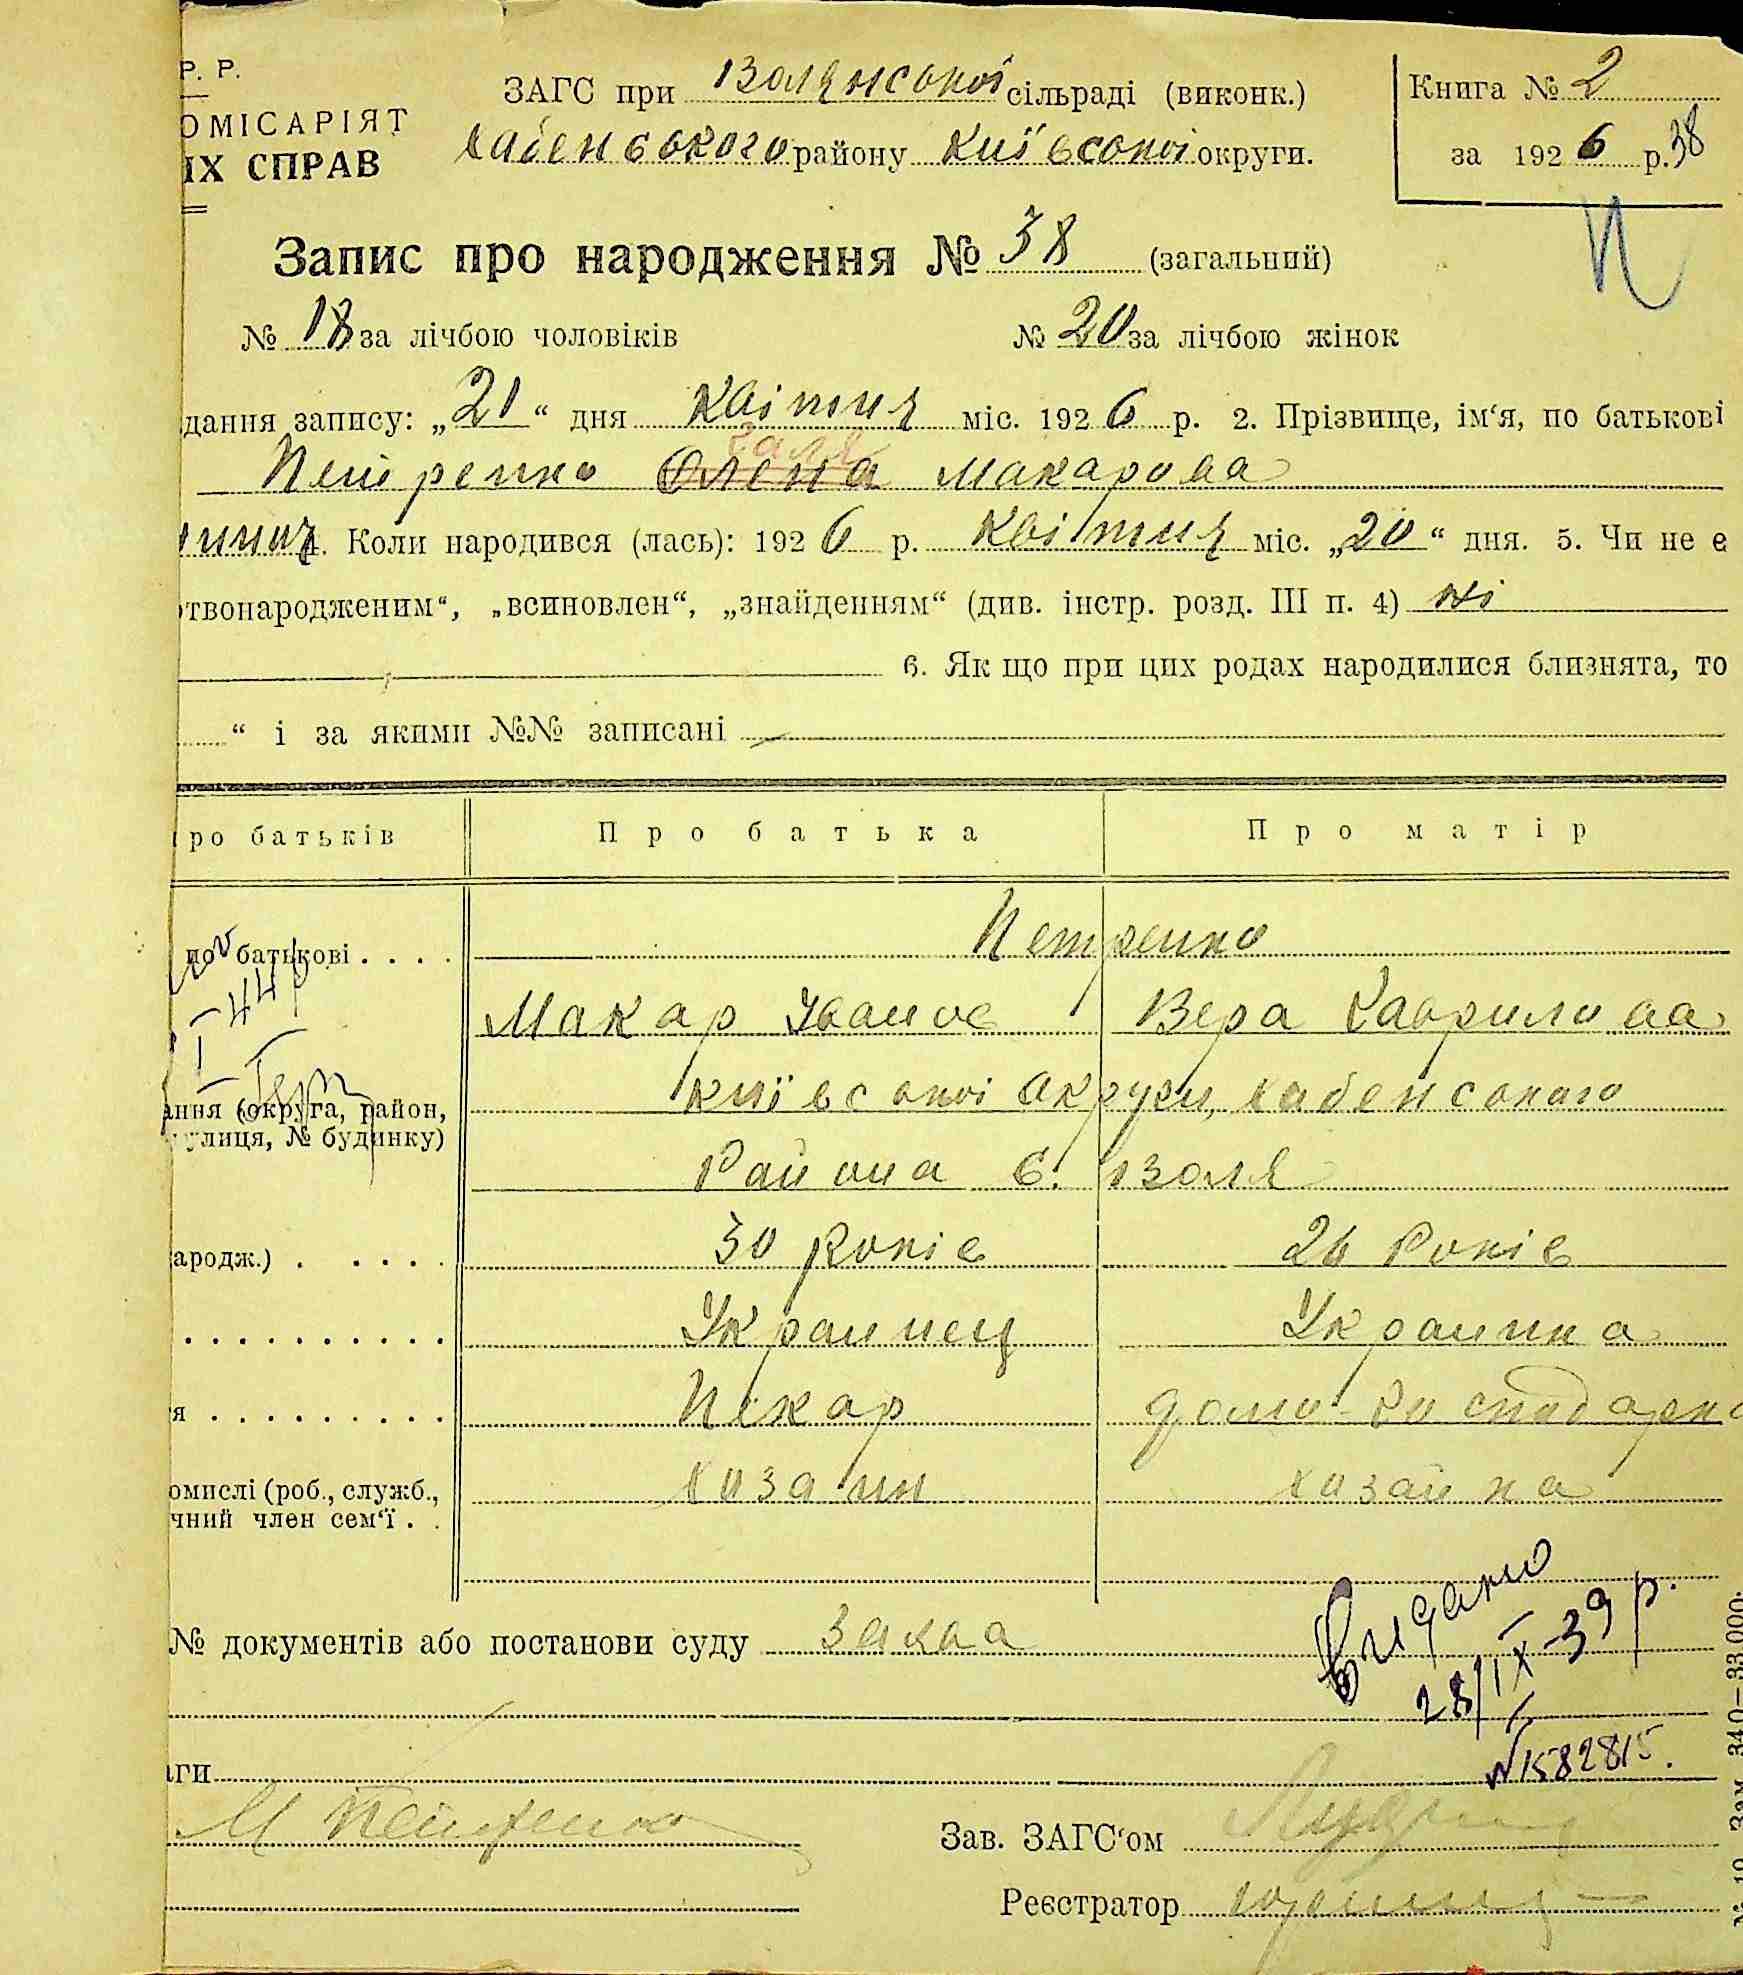 Р. Р.
ОМІСАРІЯТ
ІХ СПРАВ
ЗАГС при Волянської сільраді (виконк.)
Хабенського району Київської округи.
Книга № 2
за 1926 р. 38
Запис про народження № 38 (загальний)
№ 18 за лічбою чоловіків № 20 за лічбою жінок
дання запису: „21“ дня Квітня міс. 1926 р. 2. Прізвище, ім‘я, по батькові
Галя
Петренко Олена Макарова
4. Коли народився (лась): 1926 р. Квітня міс. „20“ дня. 5. Чи не є
ртвонародженим“, „всиновлен“, „знайденням“ (див. інстр. розд. III п. 4) ні
6. Як що при цих родах народилися близнята, то
“ і за якими №№ записані
про батьків Про батька Про матір
по батькові . . . . Петренко
44 р
Макар Іванов Вера Гаврилова
ання (округа, район, Київскої Округи, Хабенского
улиця, № будинку)
Района с. Воля
ародж.) . . . . . 30 Років 26 Років
Украинец Украинка
я . . . . . . . . . . Пекар домо-господарка
омислі (роб., служб., хозаин хозаика
чний член сем‘ї . .
Видано
28/IX-39 р.
№ документів або постанови суду заява
№1582815.
аги
М Петренко
Зав. ЗАГС‘ом
Реєстратор
№ 10 Зам. 340—33.000.